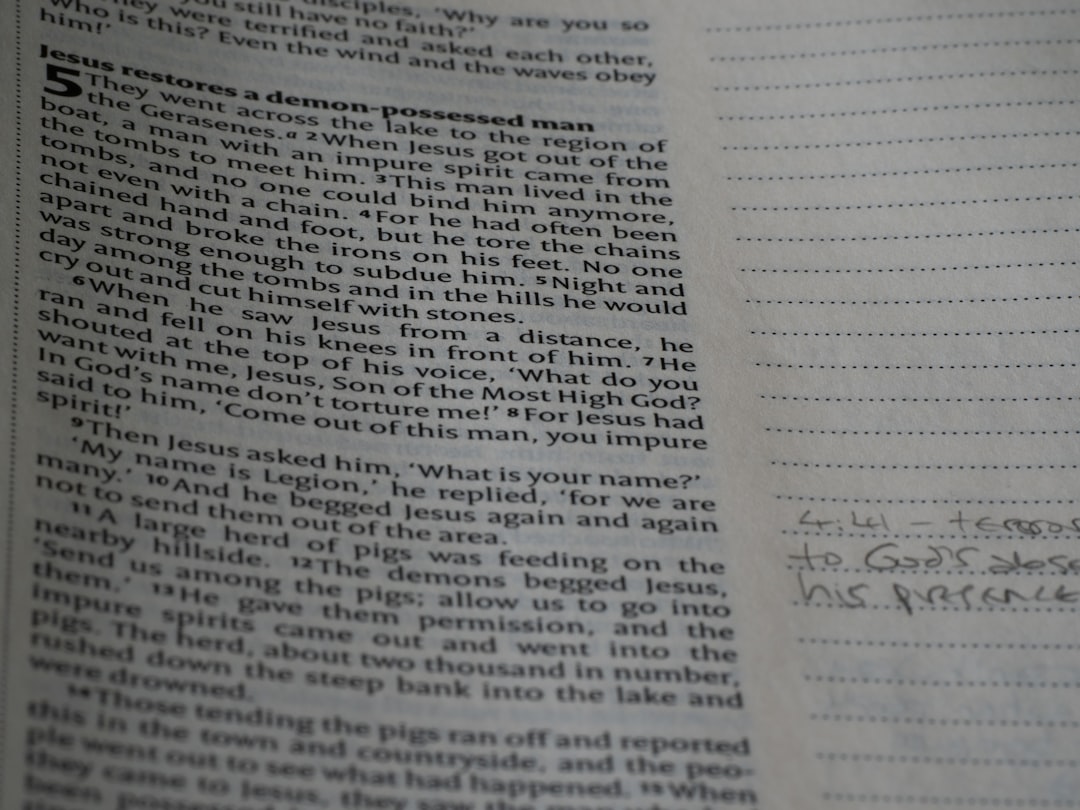 disciples, 'Why are you so
you still have no faith?'
They were terrified and asked each other,
'Who is this? Even the wind and the waves obey
him!'
Jesus restores a demon-possessed man
5 They went across the lake to the region of
the Gerasenes.a 2 When Jesus got out of the
boat, a man with an impure spirit came from
the tombs to meet him. 3 This man lived in the
tombs, and no one could bind him anymore,
not even with a chain. 4 For he had often been
chained hand and foot, but he tore the chains
apart and broke the irons on his feet. No one
was strong enough to subdue him. 5 Night and
day among the tombs and in the hills he would
cry out and cut himself with stones.
6 When he saw Jesus from a distance, he
ran and fell on his knees in front of him. 7 He
shouted at the top of his voice, 'What do you
want with me, Jesus, Son of the Most High God?
In God's name don't torture me!' 8 For Jesus had
said to him, 'Come out of this man, you impure
spirit!'
9 Then Jesus asked him, 'What is your name?'
'My name is Legion,' he replied, 'for we are
many.' 10 And he begged Jesus again and again
not to send them out of the area.
11 A large herd of pigs was feeding on the
nearby hillside. 12 The demons begged Jesus,
'Send us among the pigs; allow us to go into
them.' 13 He gave them permission, and the
impure spirits came out and went into the
pigs. The herd, about two thousand in number,
rushed down the steep bank into the lake and
were drowned.
14 Those tending the pigs ran off and reported
this in the town and countryside, and the peo-
ple went out to see what had happened. 15 When
they came to Jesus, they saw the man who
been possessed
4:41 - terror
to God's
his presence